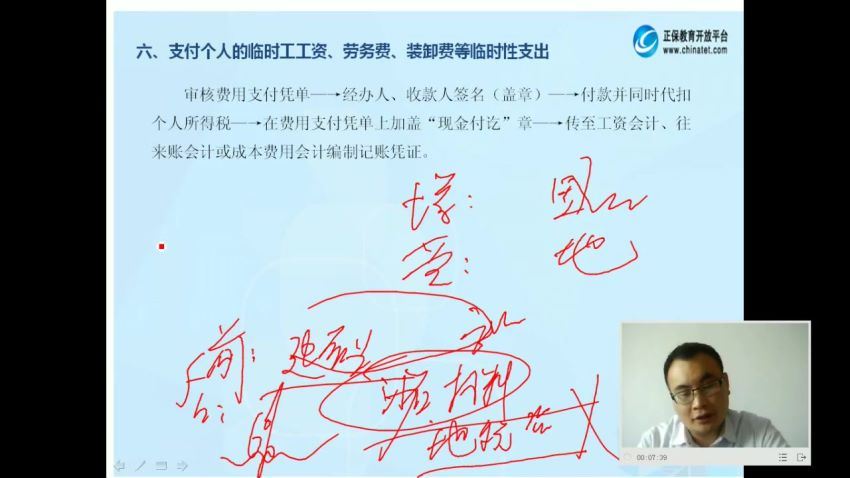 六、支付个人的临时工工资、劳务费、装卸费等临时性支出
正保教育开放平台
www.chinatet.com
审核费用支付凭单—→经办人、收款人签名（盖章）—→付款并同时代扣
个人所得税—→在费用支付凭单上加盖“现金付讫”章—→传至工资会计、往
来账会计或成本费用会计编制记账凭证。
增：国
营：地
00:07:39